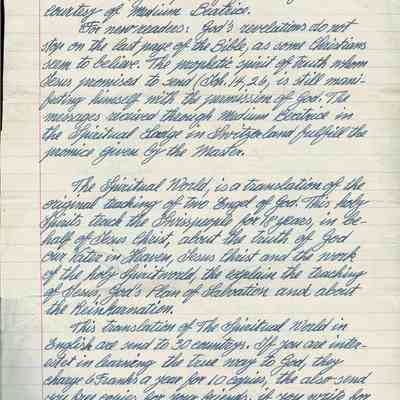 courtesy of Medium Beatrice.
For new readers: God's revelations do not
stop on the last page of the Bible, as some Christians
seem to believe. The prophetic spirit of truth whom
Jesus promised to send (Joh. 14, 26, is still mani-
festing himself with the permission of God. The
messages received through medium Beatrice in
the Spiritual Lodge in Switzerland fulfill the
promice given by the Master.
The Spiritual World, is a translation of the
original teaching of two Engel of God. This holy
Spirits teach the Swisspeople for 70 years, in be-
half of Jesus Christ, about the truth of God
our Vater in Heaven, Jesus Christ and the work
of the holy Spiritworld, the explain the teaching
of Jesus, God's Plan of Salvation and about
the Reinkarnation.
This translation of The Spiritual World in
English are send to 30 countrys. If you are inter-
estet in learning the true way to God, they
charge 6 Franks a year for 10 copies, the also send
you free copies for your friends, if you write for